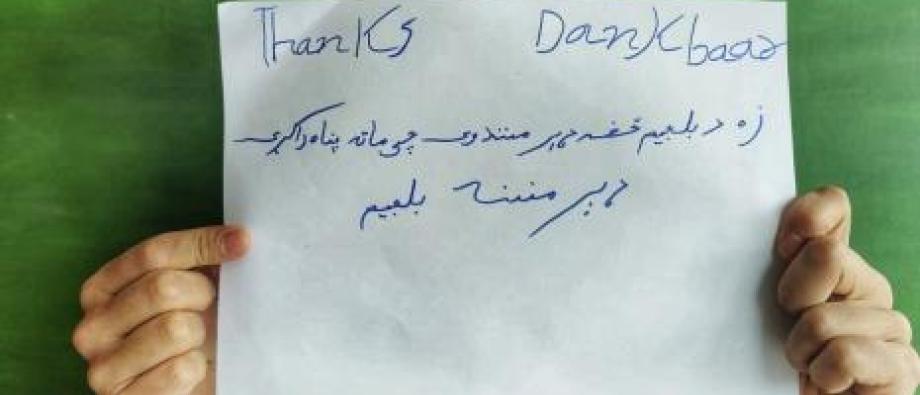 Thanks Dankbaar
زه د بلجیم څخه ډیر مننندوی چي ماته پناه راکړي
ډیر مننه بلجیم